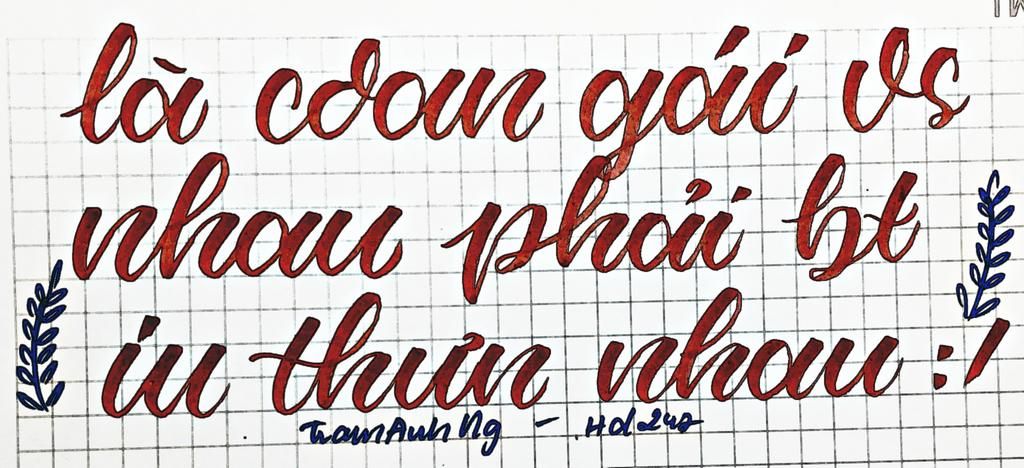 là coan gái vs
nhau phải bt
iu thưn nhau :/
TramAnh Ng - Hd247